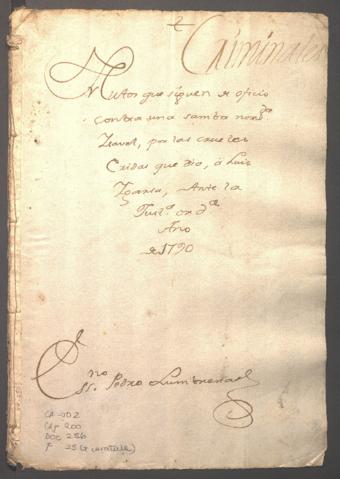 Criminales
Autos que siguen de oficio
contra una samba nom.da
Isavel, por las crueles
eridas que dio, á Luis
Ygarza, Ante la
Just.a ord.a
Año
de 1790
Ss.no Pedro Lumbreras
CA-002
CAp 200
DOC 256
F 25 (+ caratula)